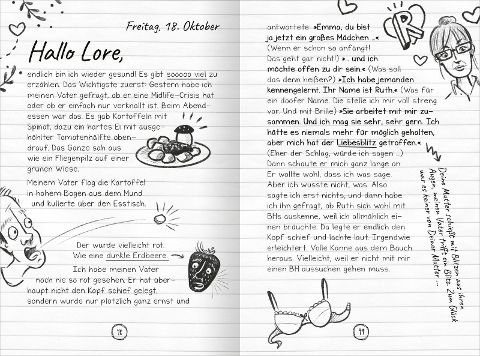 Freitag, 18. Oktober
Hallo Lore,
endlich bin ich wieder gesund! Es gibt sooooo viel zu
erzählen. Das Wichtigste zuerst: Gestern habe ich
meinen Vater gefragt, ob er eine Midlife-Crisis hat
oder ob er einfach nur verknallt ist. Beim Abend-
essen war das. Es gab Kartoffeln mit
Spinat, dazu ein hartes Ei mit ausge-
höhlter Tomatenhälfte oben-
drauf. Das Ganze sah aus
wie ein Fliegenpilz auf einer
grünen Wiese.
Meinem Vater flog die Kartoffel
in hohem Bogen aus dem Mund
und kullerte über den Esstisch.
Der wurde vielleicht rot.
Wie eine dunkle Erdbeere.
Ich habe meinen Vater
noch nie so rot gesehen. Er hat aber
überhaupt nicht den Kopf schief gelegt,
sondern wurde nur plötzlich ganz ernst und
antwortete: »Emma, du bist
ja jetzt ein großes Mädchen ...«
(Wenn er schon so anfängt!
Das geht gar nicht!) »... und ich
möchte offen zu dir sein.« (Was soll
das denn heißen?) »Ich habe jemanden
kennengelernt. Ihr Name ist Ruth.« (Was für
ein doofer Name. Die stelle ich mir voll streng
vor. Und mit Brille.) »Sie arbeitet mit mir zu-
sammen. Und ich mag sie sehr, sehr gern. Ich
hätte es niemals mehr für möglich gehalten,
aber mich hat der Liebesblitz getroffen.«
(Eher der Schlag, würde ich sagen ...)
Dann schaute er mich ganz lange an.
Er wollte wohl, dass ich was sage.
Aber ich wusste nicht, was. Also
sagte ich erst nichts, und dann habe
ich ihn gefragt, ob Ruth sich wohl mit
BHs auskenne, weil ich allmählich ei-
nen bräuchte. Da legte er endlich den
Kopf schief und lachte laut. Irgendwie
erleichtert. Volle Kanne aus dem Bauch
heraus. Vielleicht, weil er nicht mit mir
einen BH aussuchen gehen muss.
R